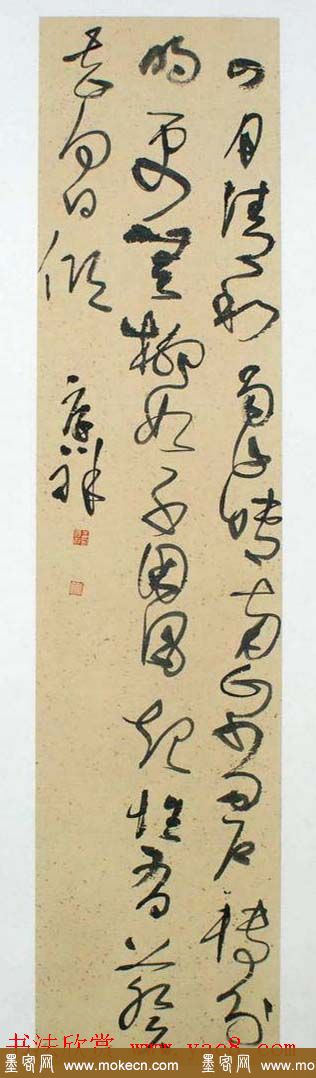 四月清和雨乍晴南山當戶轉分
明更無柳絮因風起惟有葵
花向日傾
书法欣赏 www.yac8.com
墨客网 www.mokecn.com 墨客网